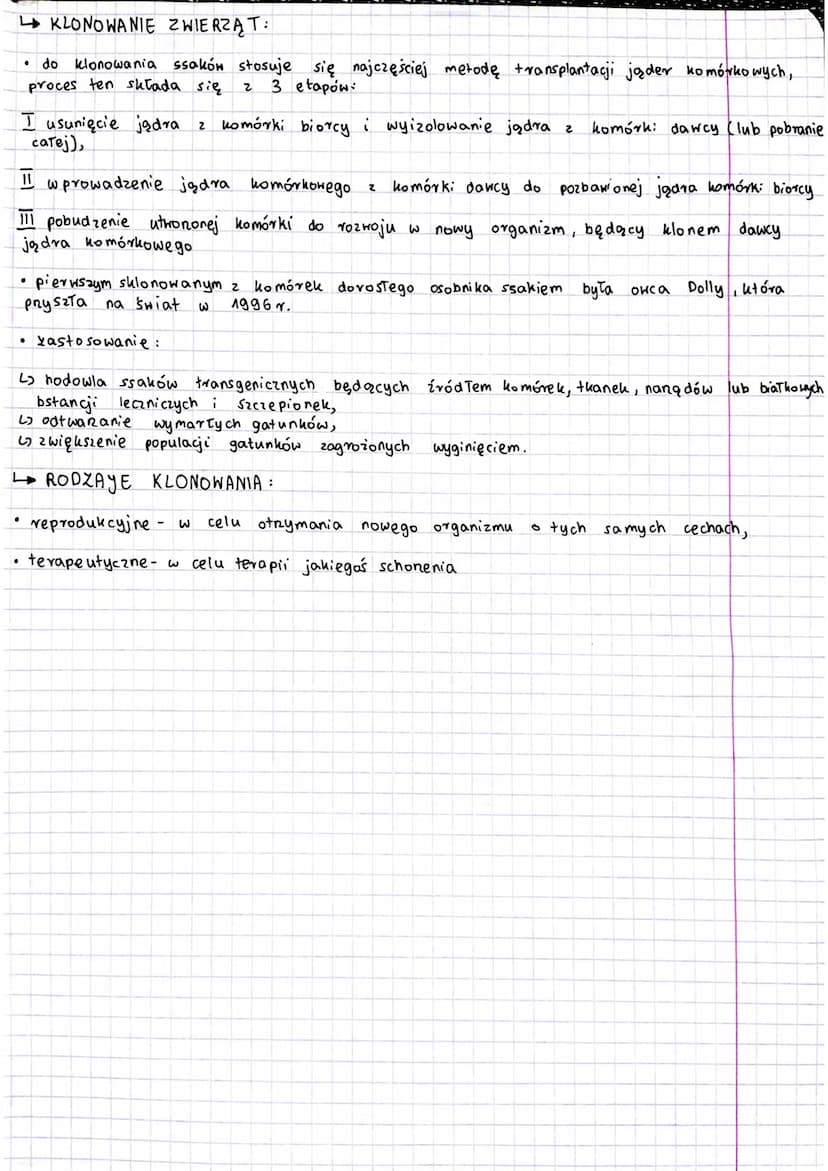 ↳ KLONOWANIE ZWIERZĄT:
• do klonowania ssaków stosuje się najczęściej metodę transplantacji jąder komórkowych,
proces ten składa się z 3 etapów:
I usunięcie jądra z komórki biorcy i wyizolowanie jądra z komórki dawcy (lub pobranie
całej),
II wprowadzenie jądra komórkowego z komórki dawcy do pozbawionej jądra komórki biorcy
III pobudzenie utworzonej komórki do rozwoju w nowy organizm, będący klonem dawcy
jądra komórkowego
• pierwszym sklonowanym z komórek dorosłego osobnika ssakiem była owca Dolly, która
przyszła na świat w 1996 r.
• zastosowanie:
↳ hodowla ssaków transgenicznych będących źródłem komórek, tkanek, narządów lub białkowych
bstancji leczniczych i szczepionek,
↳ odtwarzanie wymarłych gatunków,
↳ zwiększenie populacji gatunków zagrożonych wyginięciem.
↳ RODZAJE KLONOWANIA:
• reprodukcyjne - w celu otrzymania nowego organizmu o tych samych cechach,
• terapeutyczne - w celu terapii jakiegoś schorzenia